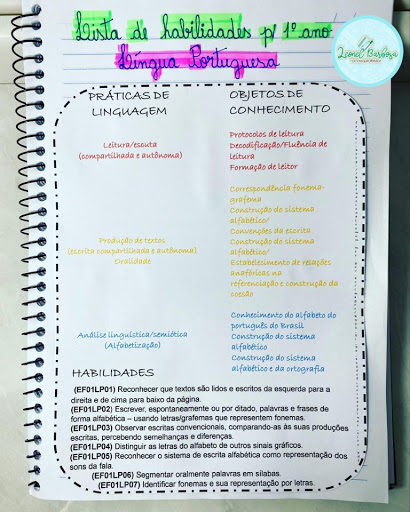 Lista de habilidades p/ 1º ano
Língua Portuguesa
Leonel Barbosa
PRÁTICAS DE
LINGUAGEM
OBJETOS DE
CONHECIMENTO
Leitura/escuta
(compartilhada e autônoma)
Protocolos de leitura
Decodificação/Fluência de
leitura
Formação de leitor
Produção de textos
(escrita compartilhada e autônoma)
Oralidade
Correspondência fonema-
grafema
Construção do sistema
alfabético/
Convenções da escrita
Construção do sistema
alfabético/
Estabelecimento de relações
anafóricas na
referenciação e construção da
coesão
Análise linguística/semiótica
(Alfabetização)
Conhecimento do alfabeto do
português do Brasil
Construção do sistema
alfabético
Construção do sistema
alfabético e da ortografia
HABILIDADES
(EF01LP01) Reconhecer que textos são lidos e escritos da esquerda para a
direita e de cima para baixo da página.
(EF01LP02) Escrever, espontaneamente ou por ditado, palavras e frases de
forma alfabética – usando letras/grafemas que representem fonemas.
(EF01LP03) Observar escritas convencionais, comparando-as às suas produções
escritas, percebendo semelhanças e diferenças.
(EF01LP04) Distinguir as letras do alfabeto de outros sinais gráficos.
(EF01LP05) Reconhecer o sistema de escrita alfabética como representação dos
sons da fala.
(EF01LP06) Segmentar oralmente palavras em sílabas.
(EF01LP07) Identificar fonemas e sua representação por letras.